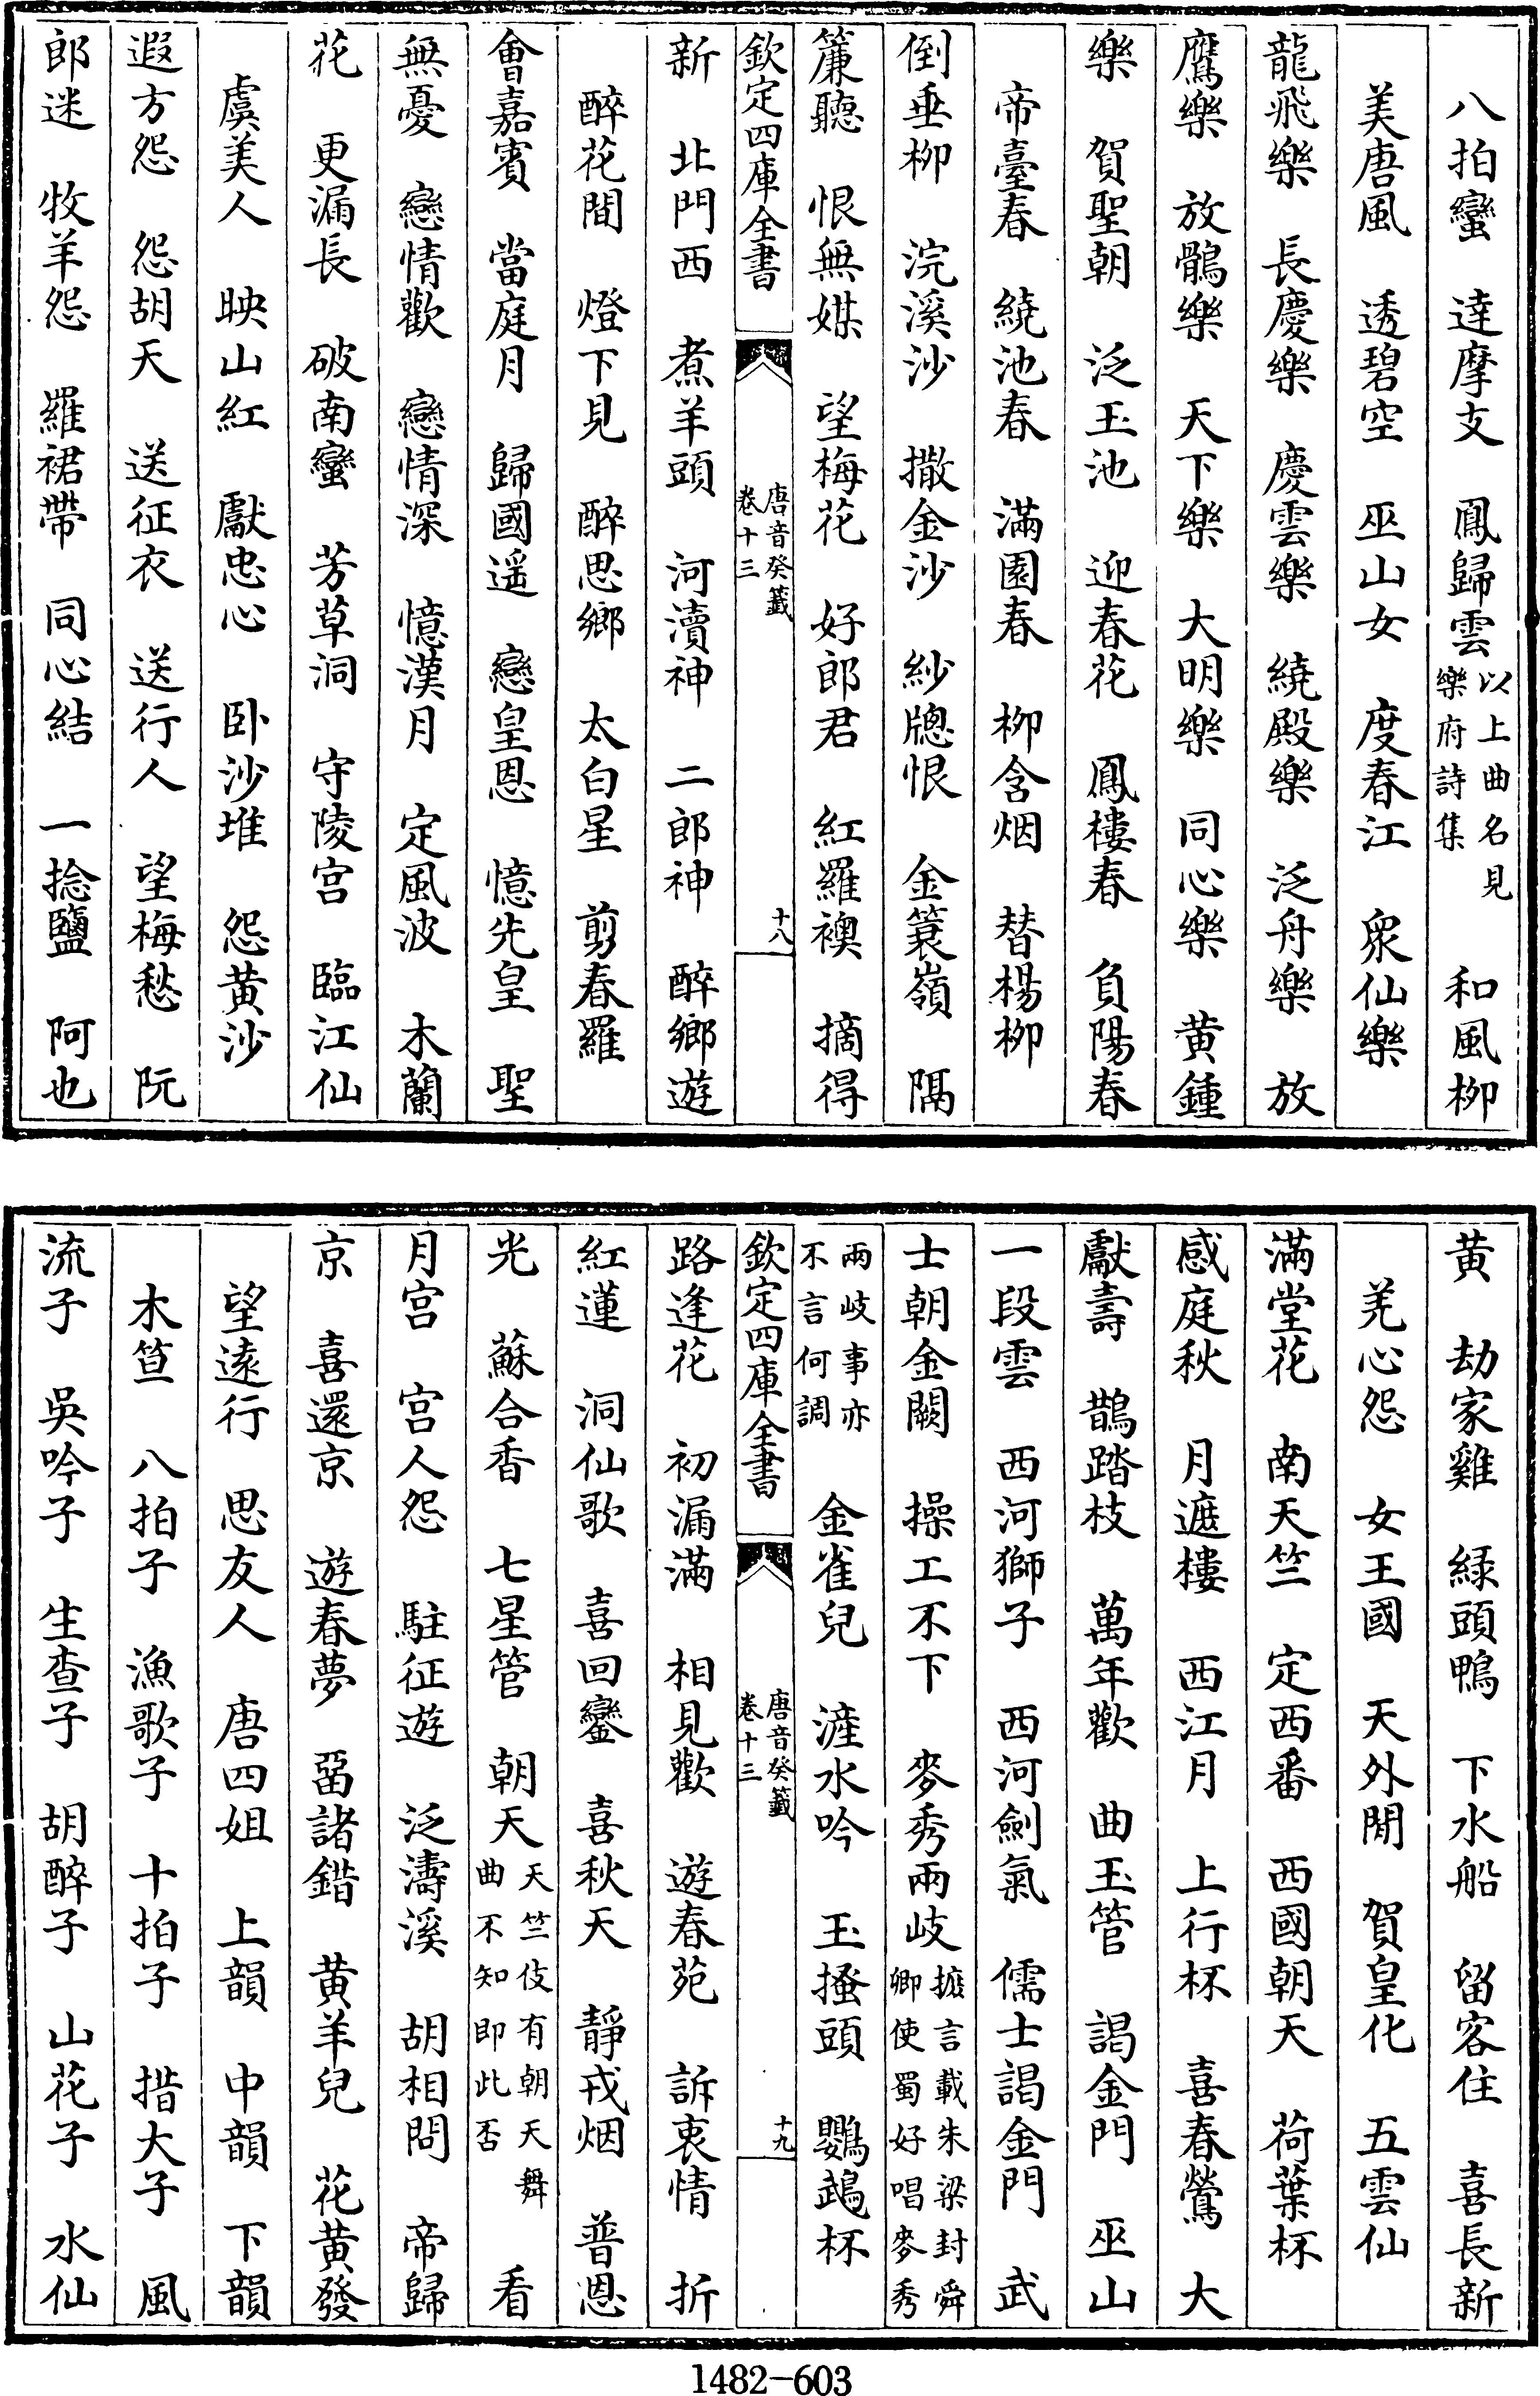 八拍蠻　達摩支　鳳歸雲以上曲名見樂府詩集　和風柳
美唐風　透碧空　巫山女　度春江　衆仙樂
龍飛樂　長慶樂　慶雲樂　繞殿樂　泛舟樂　放
鷹樂　放鶻樂　天下樂　大明樂　同心樂　黄鍾
樂　賀聖朝　泛玉池　迎春花　鳳樓春　負陽春
帝臺春　繞池春　滿園春　柳含烟　替楊柳
倒垂柳　浣溪沙　撒金沙　紗牕恨　金簑嶺　隔
簾聽　恨無媒　望梅花　好郎君　紅羅襖　摘得
欽定四庫全書　唐音癸籤卷十三　十八
新　北門西　煮羊頭　河瀆神　二郎神　醉鄉遊
醉花間　燈下見　醉思鄉　太白星　剪春羅
會嘉賓　當庭月　歸國遥　戀皇恩　憶先皇　聖
無憂　戀情歡　戀情深　憶漢月　定風波　木蘭
花　更漏長　破南蠻　芳草洞　守陵宫　臨江仙
虞美人　映山紅　獻忠心　卧沙堆　怨黄沙
遐方怨　怨胡天　送征衣　送行人　望梅愁　阮
郎迷　牧羊怨　羅裙帶　同心結　一捻鹽　阿也
黄　劫家雞　緑頭鴨　下水船　留客住　喜長新
羌心怨　女王國　天外閒　賀皇化　五雲仙
滿堂花　南天竺　定西番　西國朝天　荷葉杯
感庭秋　月遮樓　西江月　上行杯　喜春鶯　大
獻壽　鵲踏枝　萬年歡　曲玉管　謁金門　巫山
一段雲　西河獅子　西河劍氣　儒士謁金門　武
士朝金闕　操工不下　麥秀兩岐摭言載朱梁封舜卿使蜀好唱麥秀
兩岐事亦不言何調　金雀兒　滻水吟　玉搔頭　鸚鵡杯
欽定四庫全書　唐音癸籤卷十三　十九
路逢花　初漏滿　相見歡　遊春苑　訴衷情　折
紅蓮　洞仙歌　喜回鑾　喜秋天　靜戎烟　普恩
光　蘇合香　七星管　朝天天竺伎有朝天舞曲不知即此否　看
月宫　宫人怨　駐征遊　泛濤溪　胡相問　帝歸
京　喜還京　遊春夢　㽞諸錯　黄羊兒　花黄發
望遠行　思友人　唐四姐　上韻　中韻　下韻
木笪　八拍子　漁歌子　十拍子　措大子　風
流子　吳吟子　生查子　胡醉子　山花子　水仙
1482-603